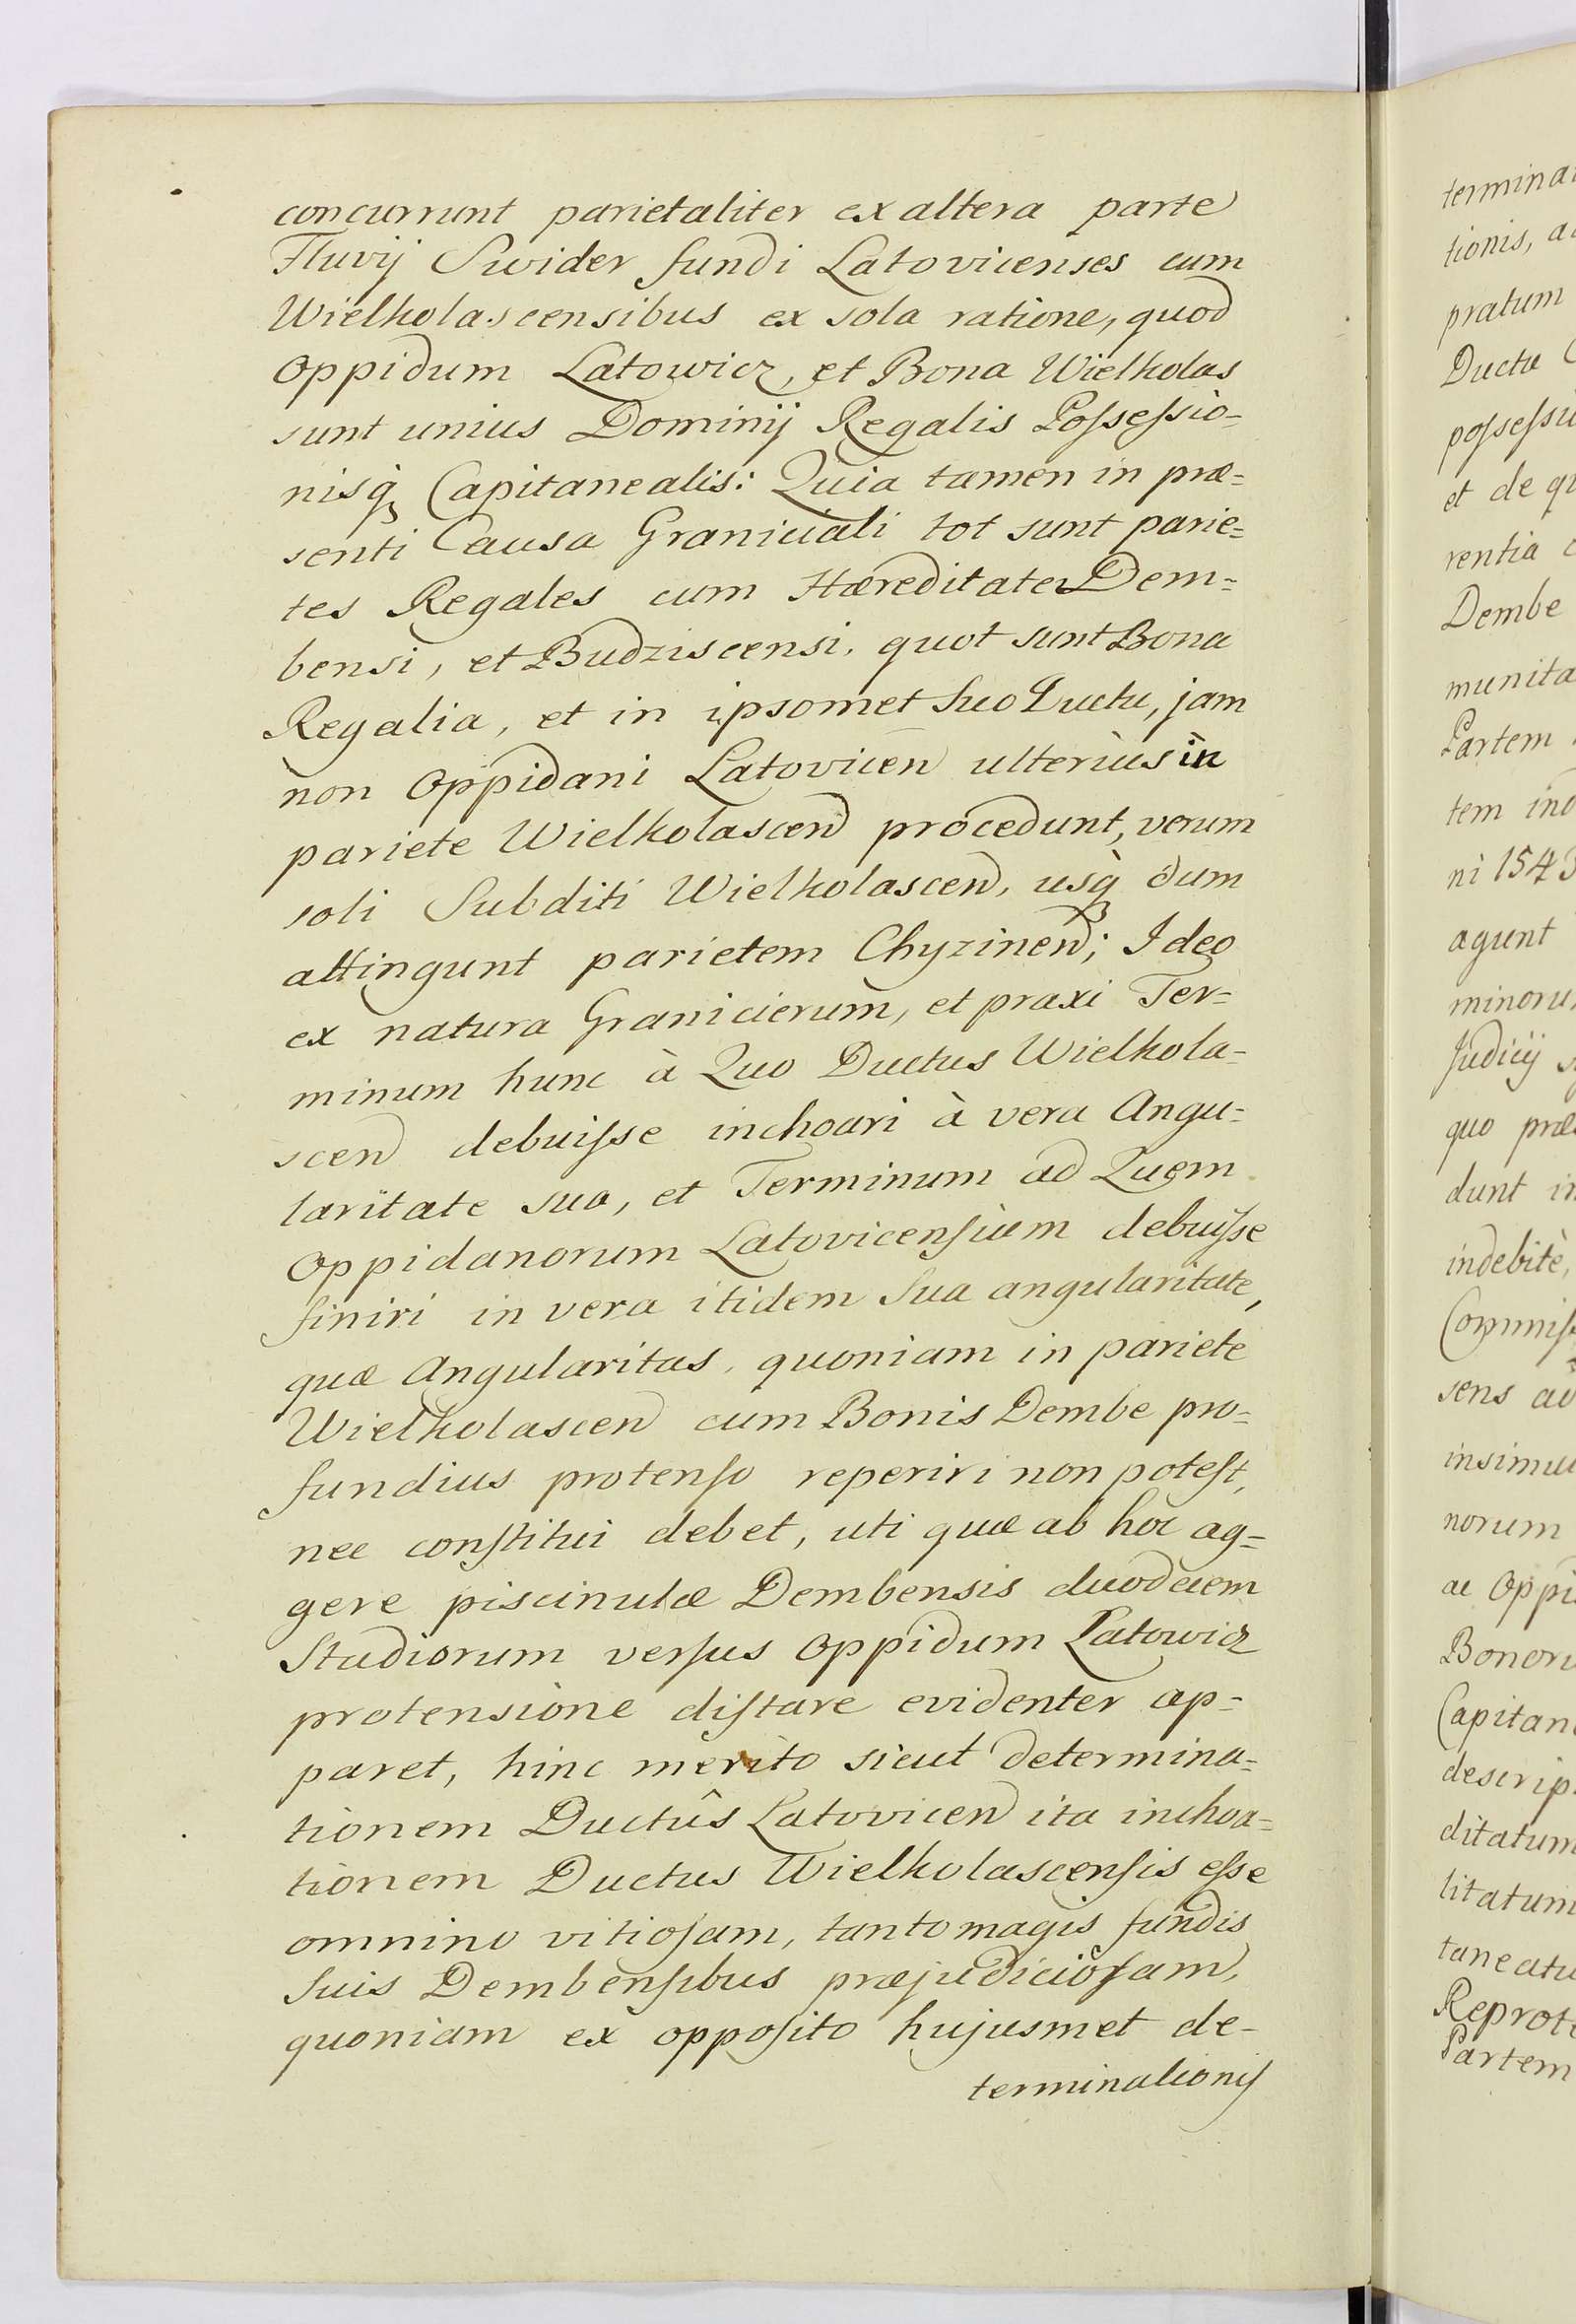 concurrunt parietaliter ex altera parte
Fluvij Swider fundi Latovicenses cum
Wielkolascensibus ex sola ratione, quod
Oppidum Latowicz, et Bona Wielkolas
sunt unius Dominij Regalis Poſseſsio-
nisq Capitanealis: Quia tamen in præ-
senti Causa Graniciali tot sunt parie-
tes Regales cum Hæreditate Dem-
bensi, et Budziscensi, quot sunt Bona
Regalia, et in ipsomet suo Ductu, jam
non Oppidani Latovicen ulteriùs in
pariete Wielkolascen procedunt, verum
soli Subditi Wielkolascen, usq dum
attingunt parietem Chyzinen; Ideo
ex natura Granicierum, et praxi Ter-
minum hunc à Quo Ductus Wielkola-
scen debuiſse inchoari à vera Angu-
laritate sua, et Terminum ad Quem
Oppidanorum Latovicenſium debuiſse
finiri in vera itidem sua angularitate,
quæ Angularitas, quoniam in pariete
Wielkolascen cum Bonis Dembe pro-
fundius protenſo reperiri non poteſt,
nec conſtitui debet, uti quæ ab hoc ag-
gere piscinulæ Dembensis duodecem
Stadiorum verſus Oppidum Latowicz
protensione diſtare evidenter ap-
paret, hinc merito sicut determina-
tionem Ductûs Latovicen ita inchoa-
tionem Ductus Wielkolascenſis eſse
omnino vitioſam, tanto magis fundis
suis Dembenſibus præjudicioſam,
quoniam ex oppoſito hujusmet de-
terminationiſ
termina
tionis, a
pratum
Ductu
poſseſsi
et de q
rentia
Dembe
munita
Partem
tem in
ni 1543
agunt
minoru
Judicij
quo præ
dunt in
indebitè,
Commiſ
sens ad
insimu
norum
ac Oppi
Bonoru
Capitan
descrip
ditatum
litatum
taneatu
Reprot
Partem